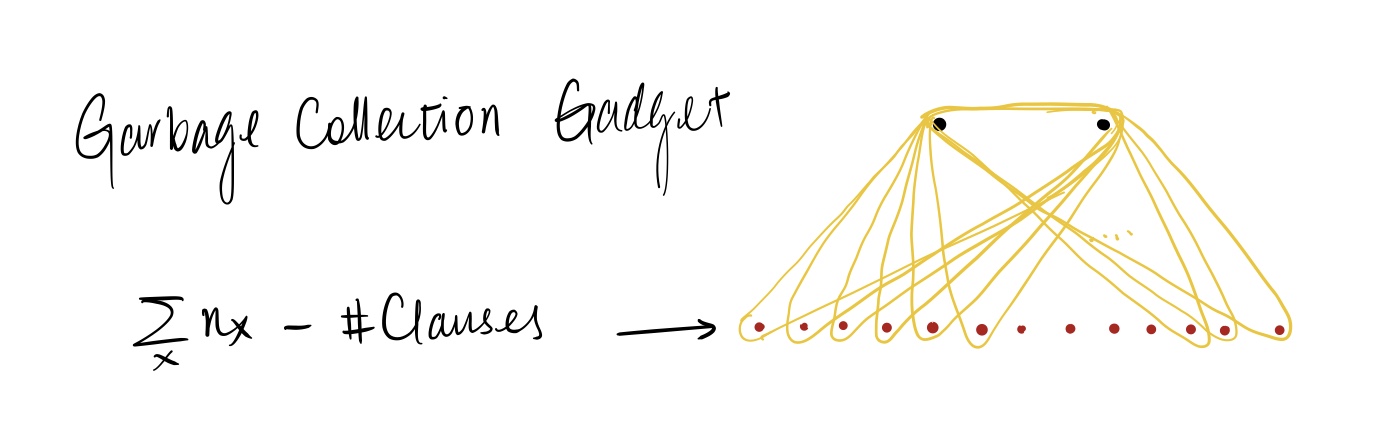 Garbage Collection Gadget
∑ₓ nₓ - #Clauses